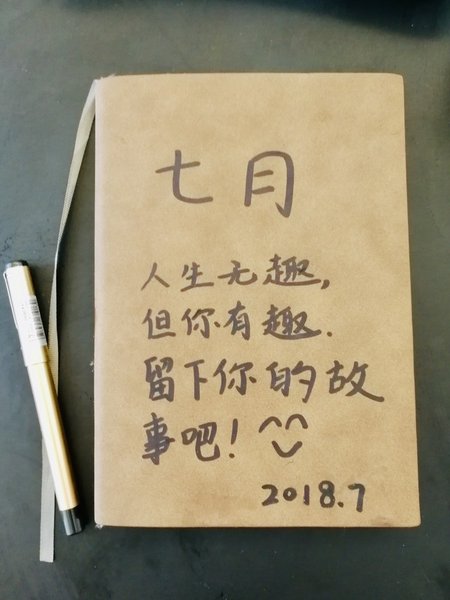 七月
人生无趣,
但你有趣.
留下你的故
事吧!
2018.7